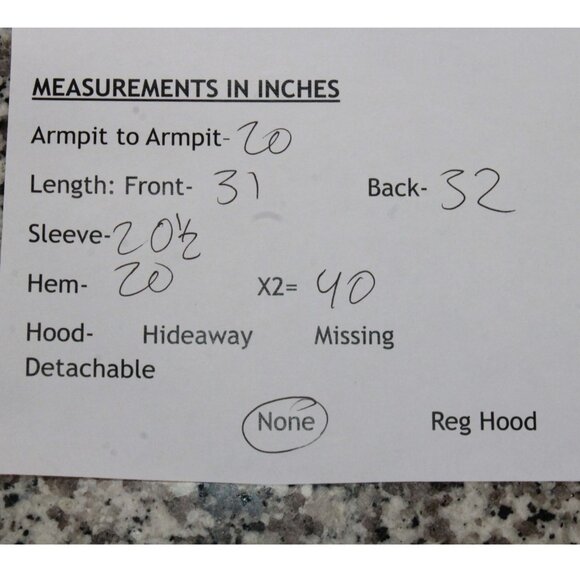 MEASUREMENTS IN INCHES
Armpit to Armpit- 20
Length: Front- 31 Back- 32
Sleeve- 20 1/2
Hem- 20 X2= 40
Hood- Hideaway Missing
Detachable
None Reg Hood